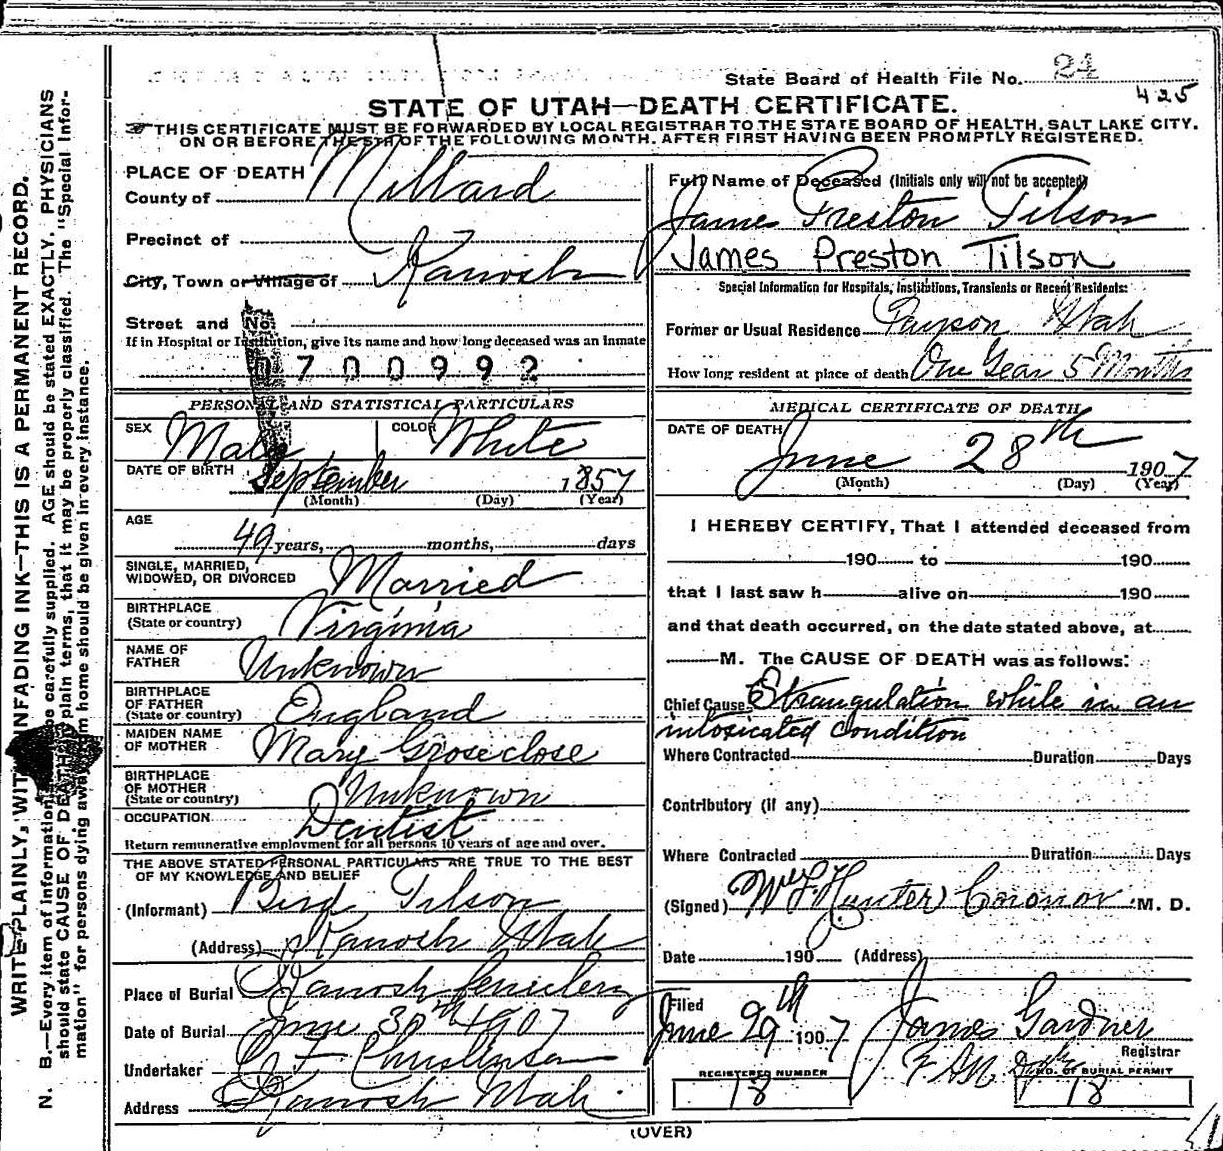 State Board of Health File No. 24
425
STATE OF UTAH—DEATH CERTIFICATE.
THIS CERTIFICATE MUST BE FORWARDED BY LOCAL REGISTRAR TO THE STATE BOARD OF HEALTH, SALT LAKE CITY.
ON OR BEFORE THE 5TH OF THE FOLLOWING MONTH. AFTER FIRST HAVING BEEN PROMPTLY REGISTERED.
WRITE PLAINLY, WITH UNFADING INK—THIS IS A PERMANENT RECORD.
N. B.—Every item of information be carefully supplied. AGE should be stated EXACTLY. PHYSICIANS
should state CAUSE OF DEATH plain terms, that it may be properly classified. The "Special Infor-
mation" for persons dying away from home should be given in every instance.
PLACE OF DEATH
County of Millard
Precinct of
City, Town or Village of Kanosh
Street and No.
If in Hospital or Institution, give its name and how long deceased was an inmate
0700992
PERSONAL AND STATISTICAL PARTICULARS
SEX Male COLOR White
DATE OF BIRTH September 1857
(Month) (Day) (Year)
AGE
49 years, months, days
SINGLE, MARRIED,
WIDOWED, OR DIVORCED Married
BIRTHPLACE
(State or country) Virginia
NAME OF
FATHER Unknown
BIRTHPLACE
OF FATHER
(State or country) England
MAIDEN NAME
OF MOTHER Mary Groseclose
BIRTHPLACE
OF MOTHER
(State or country) Unknown
OCCUPATION Dentist
Return remunerative employment for all persons 10 years of age and over.
THE ABOVE STATED PERSONAL PARTICULARS ARE TRUE TO THE BEST
OF MY KNOWLEDGE AND BELIEF
(Informant) Bird Tilson
(Address) Kanosh Utah
Place of Burial Kanosh Cemetery
Date of Burial June 30th 1907
Undertaker Christensen
Address Kanosh Utah
Full Name of Deceased (Initials only will not be accepted)
James Preston Tilson
James Preston Tilson
Special Information for Hospitals, Institutions, Transients or Recent Residents:
Former or Usual Residence Payson Utah
How long resident at place of death One Year 5 Months
MEDICAL CERTIFICATE OF DEATH
DATE OF DEATH
June 28th 1907
(Month) (Day) (Year)
I HEREBY CERTIFY, That I attended deceased from
190 to 190
that I last saw h alive on 190
and that death occurred, on the date stated above, at
M. The CAUSE OF DEATH was as follows:
Chief Cause Strangulation while in an
intoxicated condition
Where Contracted Duration Days
Contributory (if any)
Where Contracted Duration Days
(Signed) Hunter Coronor M. D.
Date 190 (Address)
Filed
June 29th 1907 James Gardner
Registrar
REGISTERED NUMBER NO. OF BURIAL PERMIT
18 18
(OVER)